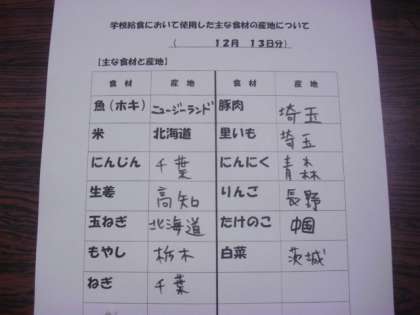 学校給食において使用した主な食材の産地について
( 12月 13日分)
【主な食材と産地】
食材 産地 食材 産地
魚(ホキ) ニュージーランド 豚肉 埼玉
米 北海道 里いも 埼玉
にんじん 千葉 にんにく 青森
生姜 高知 りんご 長野
玉ねぎ 北海道 たけのこ 中国
もやし 栃木 白菜 茨城
ねぎ 千葉